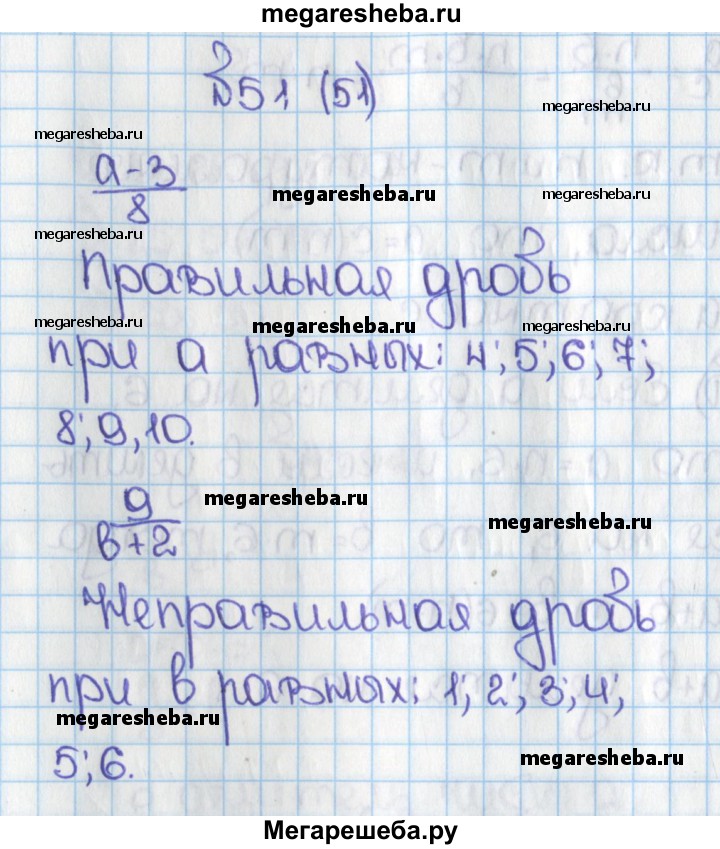 megaresheba.ru
№51 (51)
megaresheba.ru
megaresheba.ru
a-3
8
megaresheba.ru
megaresheba.ru
megaresheba.ru
Правильная дробь
megaresheba.ru
megaresheba.ru
megaresheba.ru
при а равных: 4; 5; 6; 7;
8; 9, 10.
9
в+2
megaresheba.ru
megaresheba.ru
Неправильная дробь
при в равных: 1; 2; 3; 4;
megaresheba.ru
5; 6.
megaresheba.ru
Мегарешеба.ру